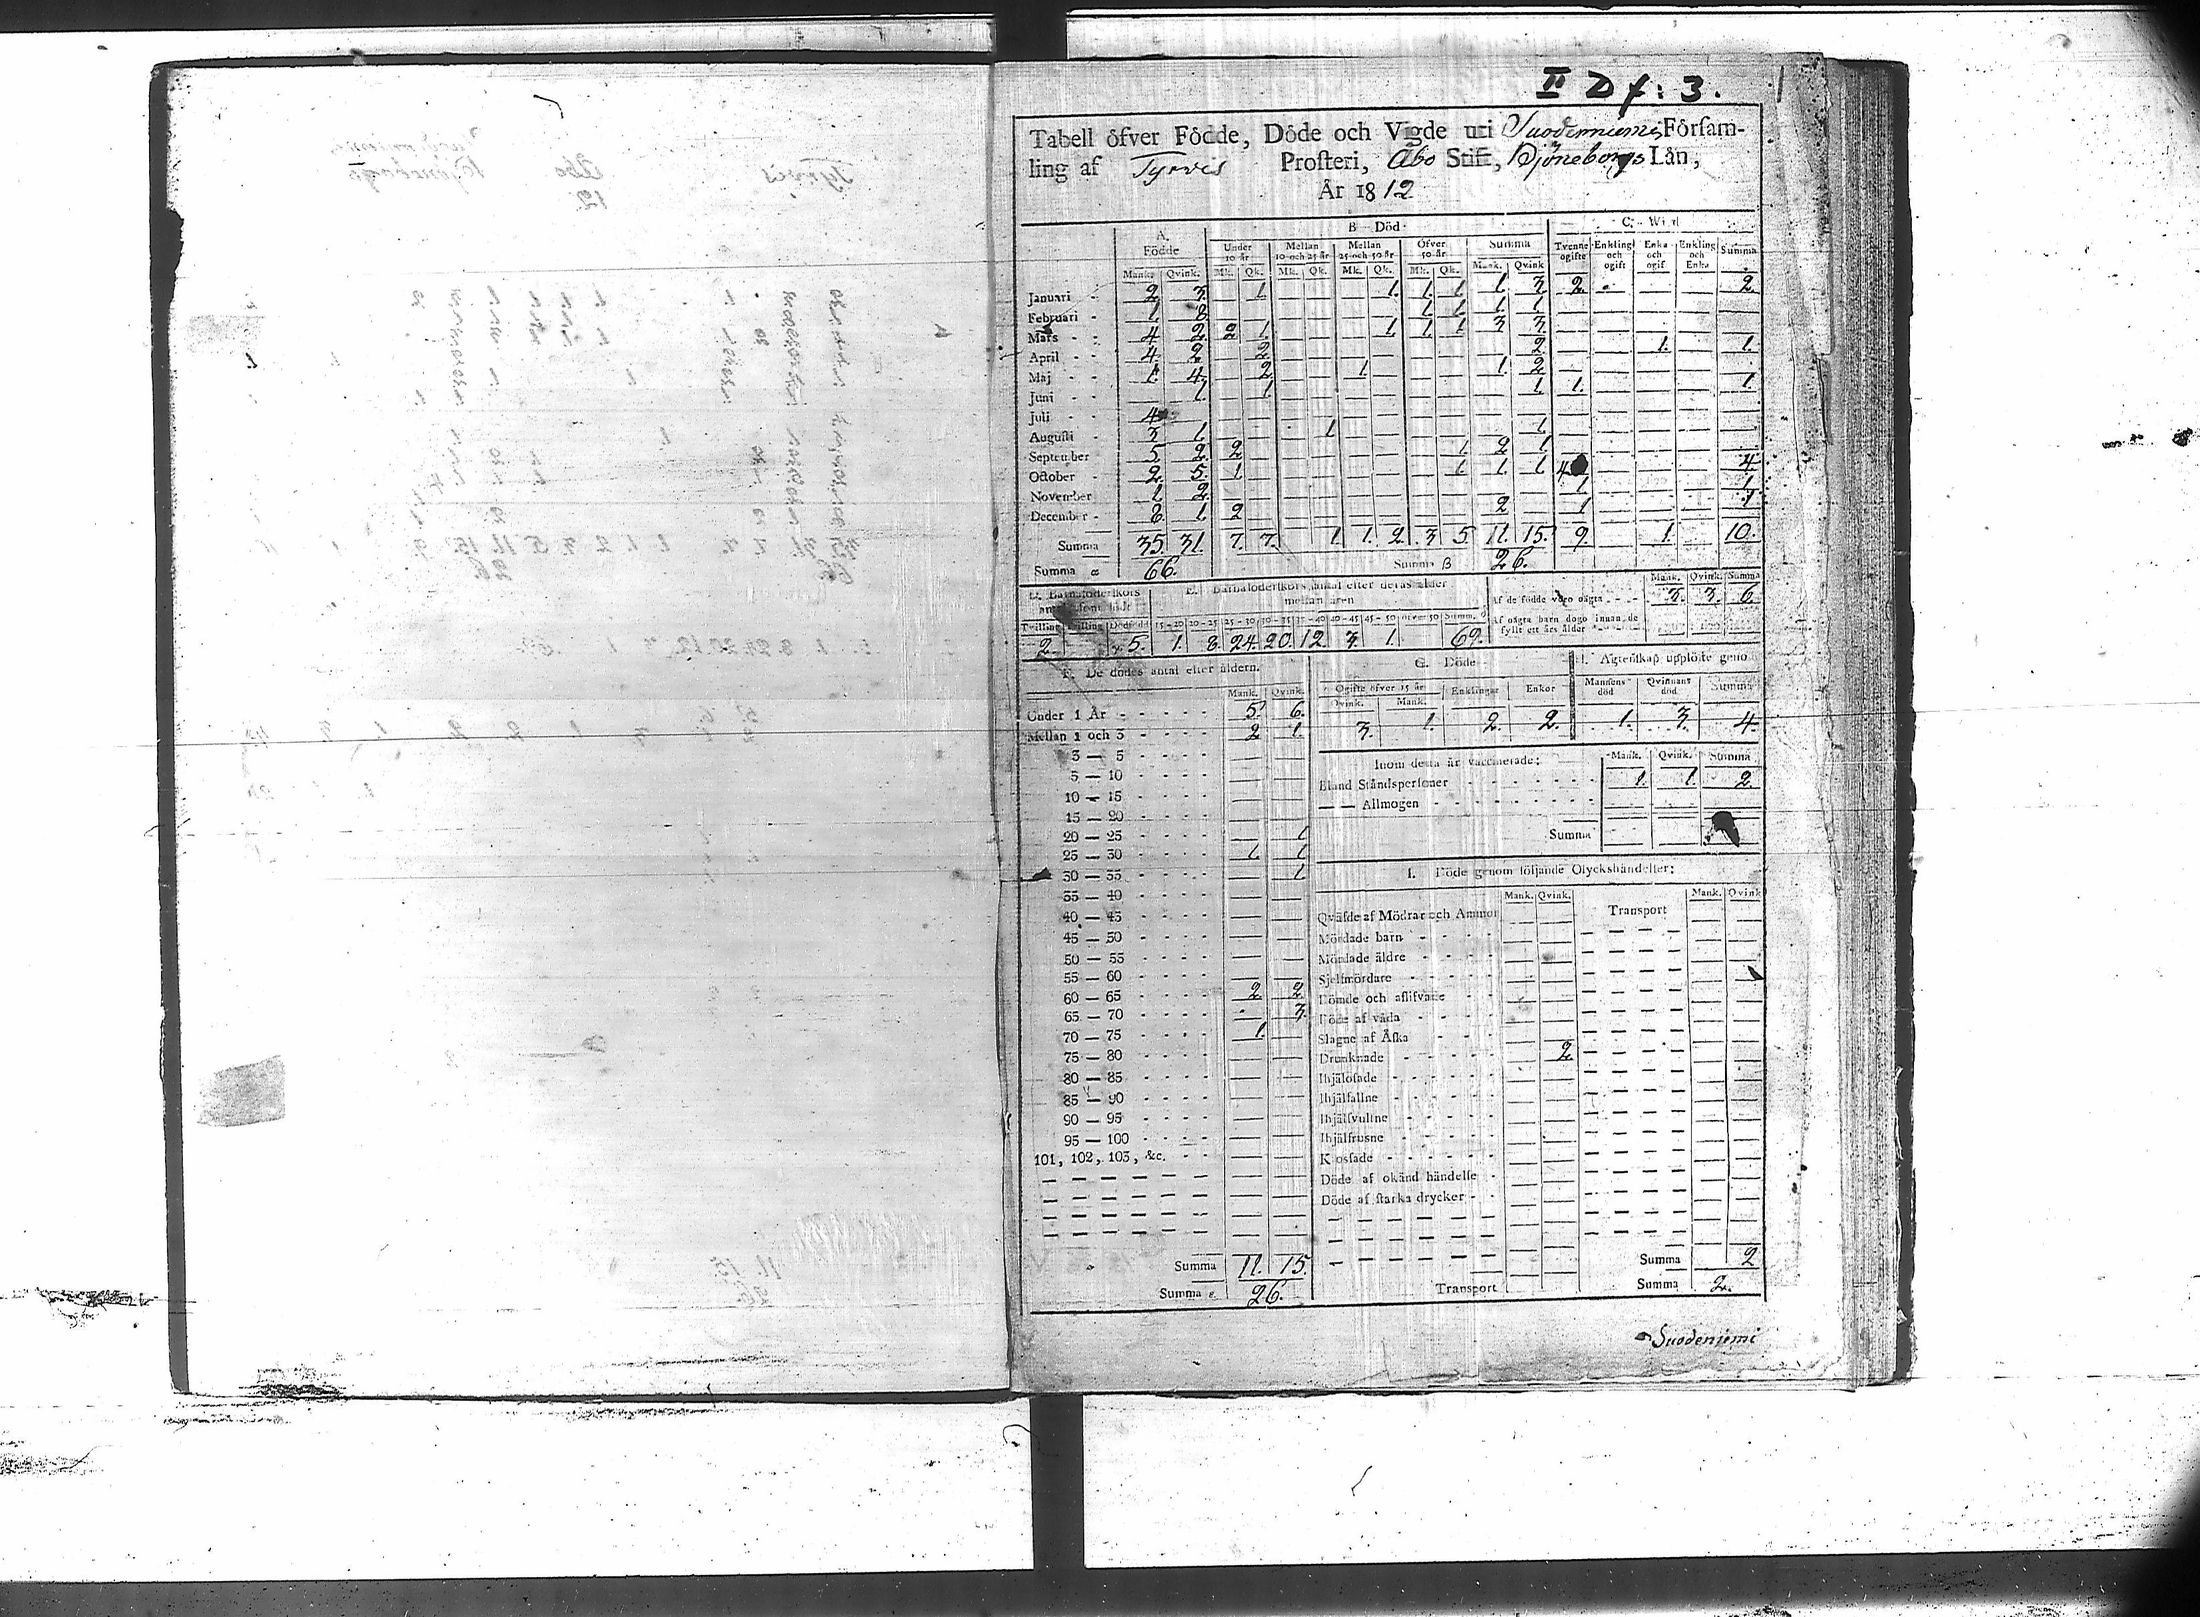 II D f: 3.
Tabell öfver Födde, Döde och Vigde uti Suodenniemi Försam-
ling af Tyrvis Prosteri, Åbo Stift, Björneborgs Län,
År 1812
A. Födde B. Död C. Wigd
Under 10 år Mellan 10 och 25 år Mellan 25 och 50 år Öfver 50 år Summa Tvenne ogifte Enkling och ogift Enka och ogif Enkling och Enka Summa
Mank. Qvink. Mk. Qk. Mk. Qk. Mk. Qk. Mk. Qk. Mank. Qvink
Januari 2 3. — 1. — — — 1. 1. 1. 1. 3 2. — — — 2.
Februari 1 8 — — — — — — 1. 1. 1. 1 — — — — —
Mars 4 2. 2 1. — — — 1. 1. 1. 3 3 — — — — —
April 4. 2. — 2. — — — — — — — 2. — — 1. — 1.
Maj 1. 4. — 2. — — 1. — — — 1. 2. — — — — —
Juni — 1. — 1. — — — — — — — 1. 1. — — — 1.
Juli 4 — — — — — — — — — — — — — — — —
Augusti 3 1. — — — 1. — — — — — 1. — — — — —
September 5. 2. 2 — — — — — — 1. 2 1. — — — — —
October 2. 5. 1. — — — — — — 1. 1. 1. 4 — — — 4.
November 1 2. — — — — — — — — — — 1. — — — 1.
December 8. 1. 2 — — — — — — — 2 — 1 — — — 1
Summa 35. 31. 7. 7. — 1. 1. 2. 3 5 11. 15. 9. — 1. — 10.
Summa α 66. Summa B 26.
D. Barnaföderskors E. Barnaföderskors antal efter deras ålder mellan åren Mank. Qvink. Summa
Af de födde voro oägta 3. 3. 6.
Tvilling Trilling Dödfödd 15–20 20–25 25–30 30–35 35–40 40–45 45–50 öfver 50 Summa Af oägta barn dogo innan de fyllt ett års ålder
2. 5. 1. 8. 24. 20. 12. 3. 1. 69.
F. De dödes antal efter åldern. G. Döde H. Ägtenskap upplöste geno
Mank. Qvink. Ogifte öfver 15 år Enklingar Enkor Mannens död Qvinnans död Summa
Qvink. Mank.
Under 1 År 5. 6.
Mellan 1 och 3 2 1. 3. 1. 2. 2. 1. 3. 4.
3 — 5 Inom detta år vaccinerade: Mank. Qvink. Summa
5 — 10 Bland Ståndspersoner 1. 1. 2.
10 — 15 — — Allmogen
15 — 20
20 — 25 1 Summa
25 — 30 1. 1
30 — 35 1 I. Döde genom följande Olyckshändelser:
35 — 40 Mank. Qvink. Mank. Qvink
40 — 45 Qväfde af Mödrar och Ammor Transport
45 — 50 Mördade barn
50 — 55 Mördade äldre
55 — 60 Sjelfmördare
60 — 65 2. 2. Dömde och aflifvade
65 — 70 3. Döde af våda
70 — 75 1. Slagne af Åska
75 — 80 Drunknade 2.
80 — 85 Ihjälösade
85 — 90 Ihjälfallne
90 — 95 Ihjälsvultne
95 — 100 Ihjälfrusne
101, 102, 103, &c. Kolosade
Döde af okänd händelse
Döde af starka drycker
Summa 11. 15. Summa 2
Summa 26. Transport Summa 2.
Suodenjemi